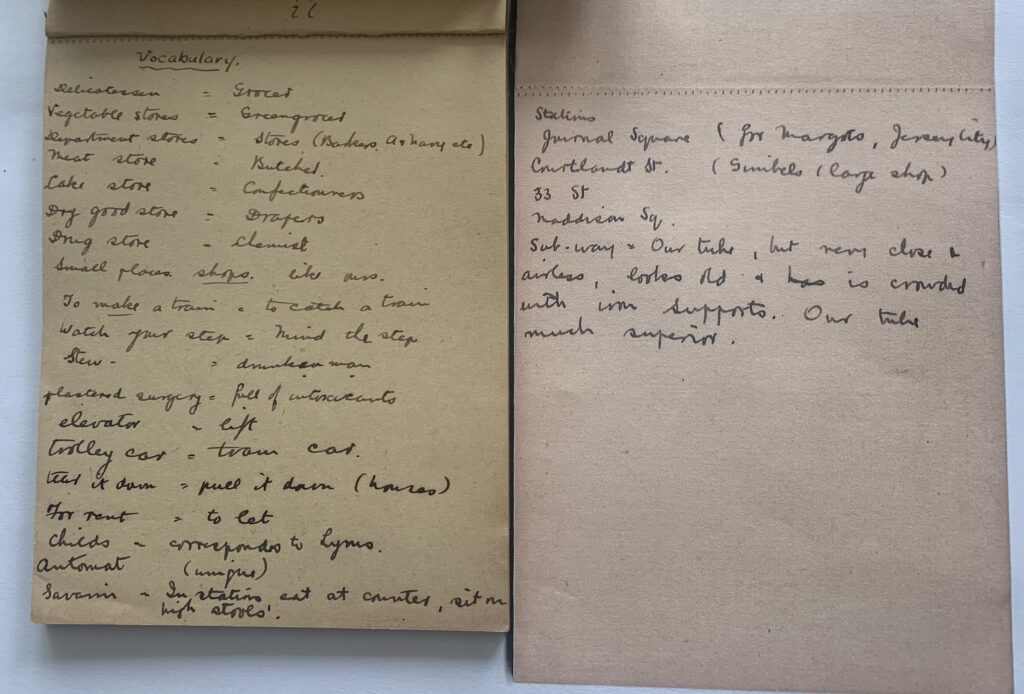 Vocabulary.
Delicatessen = Grocer
Vegetable stores = Greengrocer
Department stores = Stores (Barkers, A & Navy etc)
Meat store = Butcher.
Cake store = Confectioners
Dry good store = Drapers
Drug store = Chemist
Small places shops. like ours.
To make a train = to catch a train
Watch your step = Mind the step
Stew - = drunken man
plastered surgery = full of intoxicants
elevator = lift
trolley car = tram car.
tear it down = pull it down (houses)
For rent = to let
Childs = corresponds to Lyons.
Automat (unique)
Savarin = In station eat at counter, sit on
high stools'.
Stations
Journal Square (for Margots, Jersey City)
Courtlandt St. (Gimbels (large shop)
33 St
Maddison Sq.
Sub-way = Our tube, but very close &
airless, looks old & has is crowded
with iron supports. Our tube
much superior.